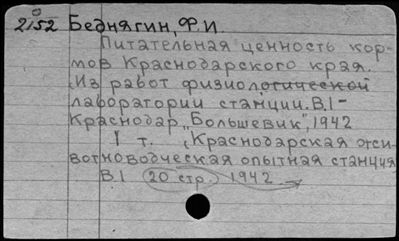 2152 Беднягин, Ф.И.
Питательная ценность кор-
мов Краснодарского края.
(Из работ физиологической
лаборатории станции. В.1-
Краснодар, "Большевик", 1942
1 т. (Краснодарская жи-
вотноводческая опытная станция
В.1 20 стр. 1942